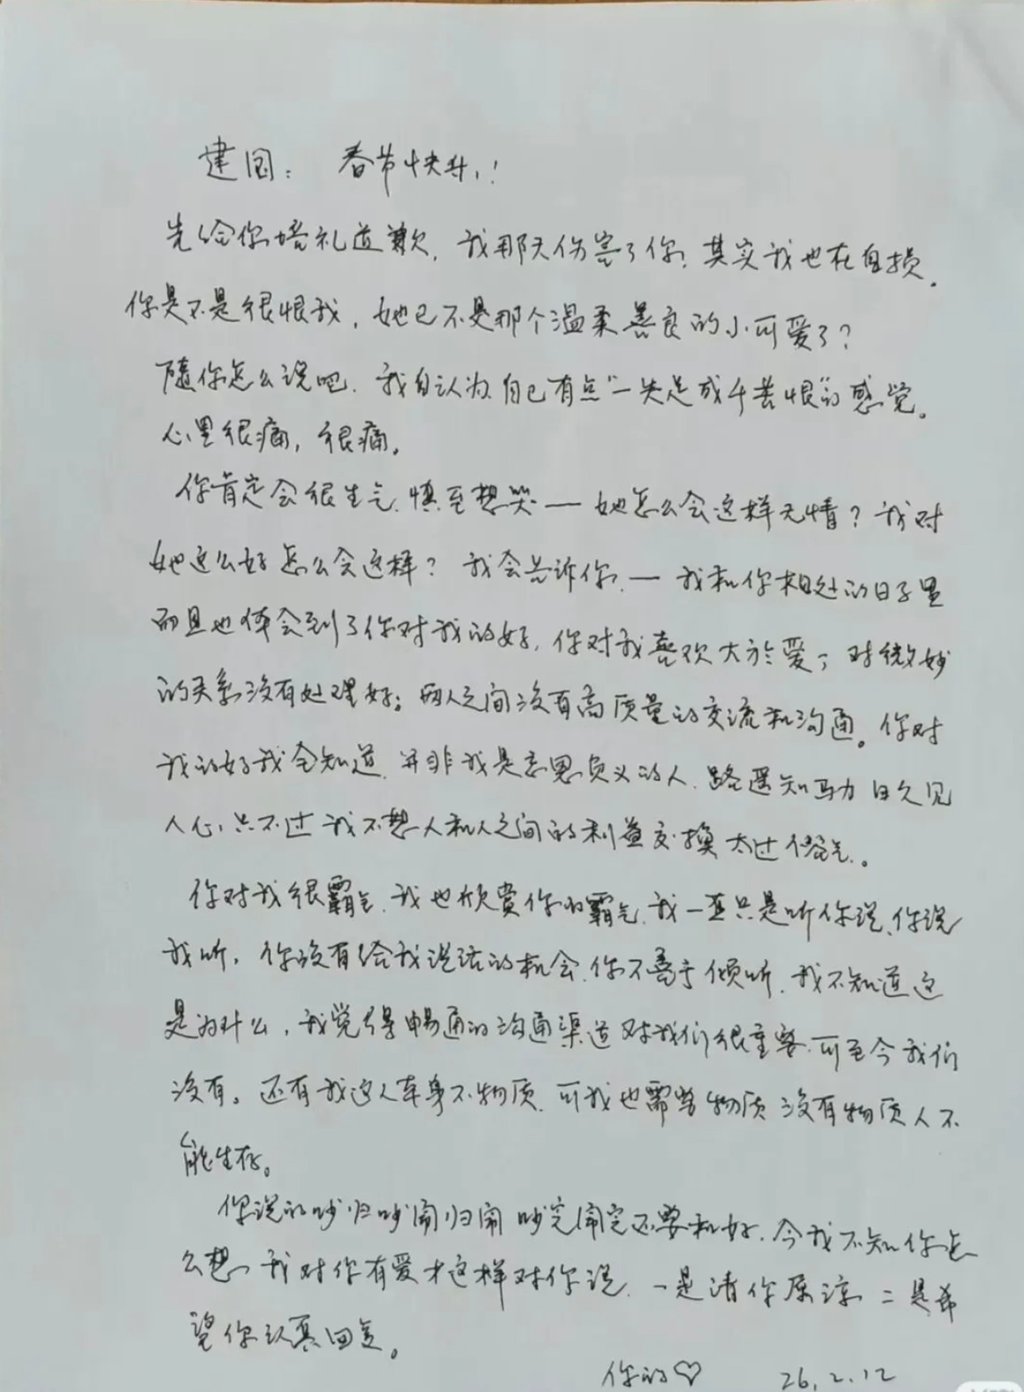 建国：春节快乐！
先给你培礼道歉，我那天伤害了你，其实我也在自损。
你是不是很恨我，她已不是那个温柔善良的小可爱了？
随你怎么说吧，我自认为自己有点“一失足成千苦恨”的感觉。
心里很痛，很痛。
你肯定会很生气，慎至想哭——她怎么会这样无情？我对
她这么好怎么会这样？我会告诉你，——我和你相处的日子里
而且也体会到了你对我的好，你对我喜欢大于爱；对微妙
的关系没有处理好；两人之间没有高质量的交流和沟通。你对
我的好我全知道，并非我是忘恩负义的人，路遥知马力日久见
人心，只不过我不想人和人之间的利益交换太过俗气。
你对我很霸气，我也欣赏你的霸气，我一直只是听你说，你说
我听，你没有给我说话的机会，你不善于倾听，我不知道这
是为什么，我觉得畅通的沟通渠道对我们很重要，可至今我们
没有。还有我这人本身不物质，可我也需要物质没有物质人不
能生存。
你说的吵归吵闹归闹吵完闹完还要和好，今我不知你怎
么想，我对你有爱才这样对你说，一是请你原谅二是希
望你认真回复。
你的♡ 26.2.12